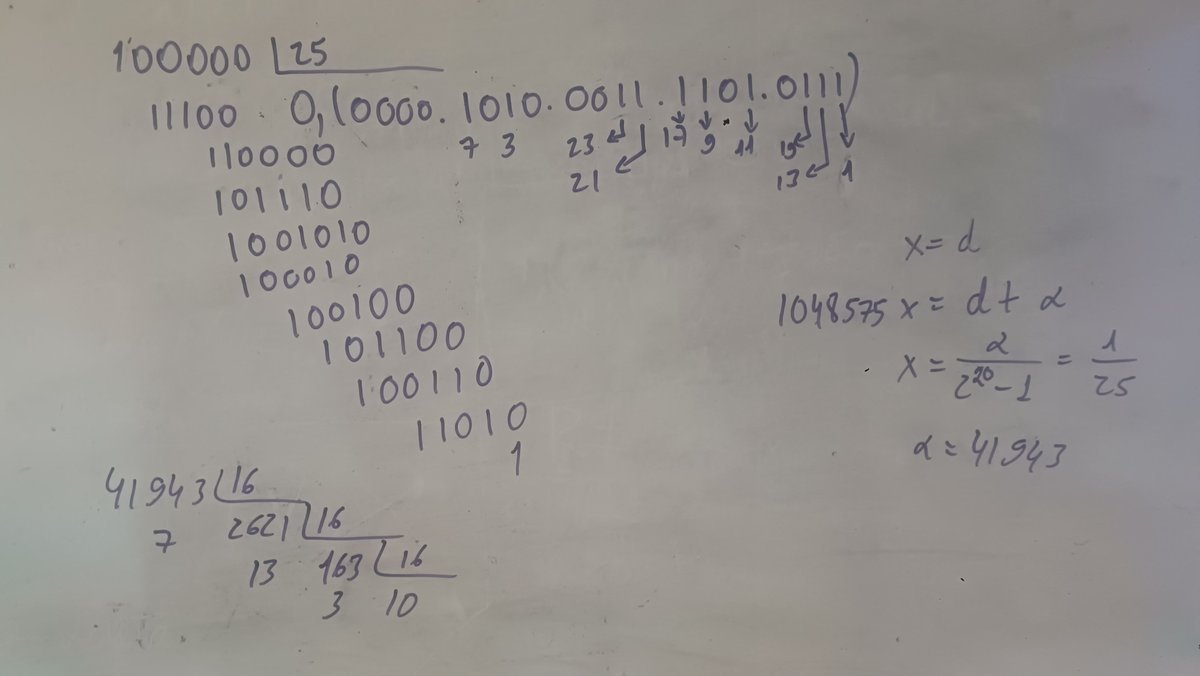 100000 | 25
11100 0,(0000.1010.0011.1101.0111)
7 3 23 17 9 11 19
21 13 1
110000
101110
1001010
100010
100100
101100
100110
11010
1
x = d
1048575 x = d + α
x = α / (2^20 - 1) = 1 / 25
α = 41943
41943 | 16
7 2621 | 16
13 163 | 16
3 10